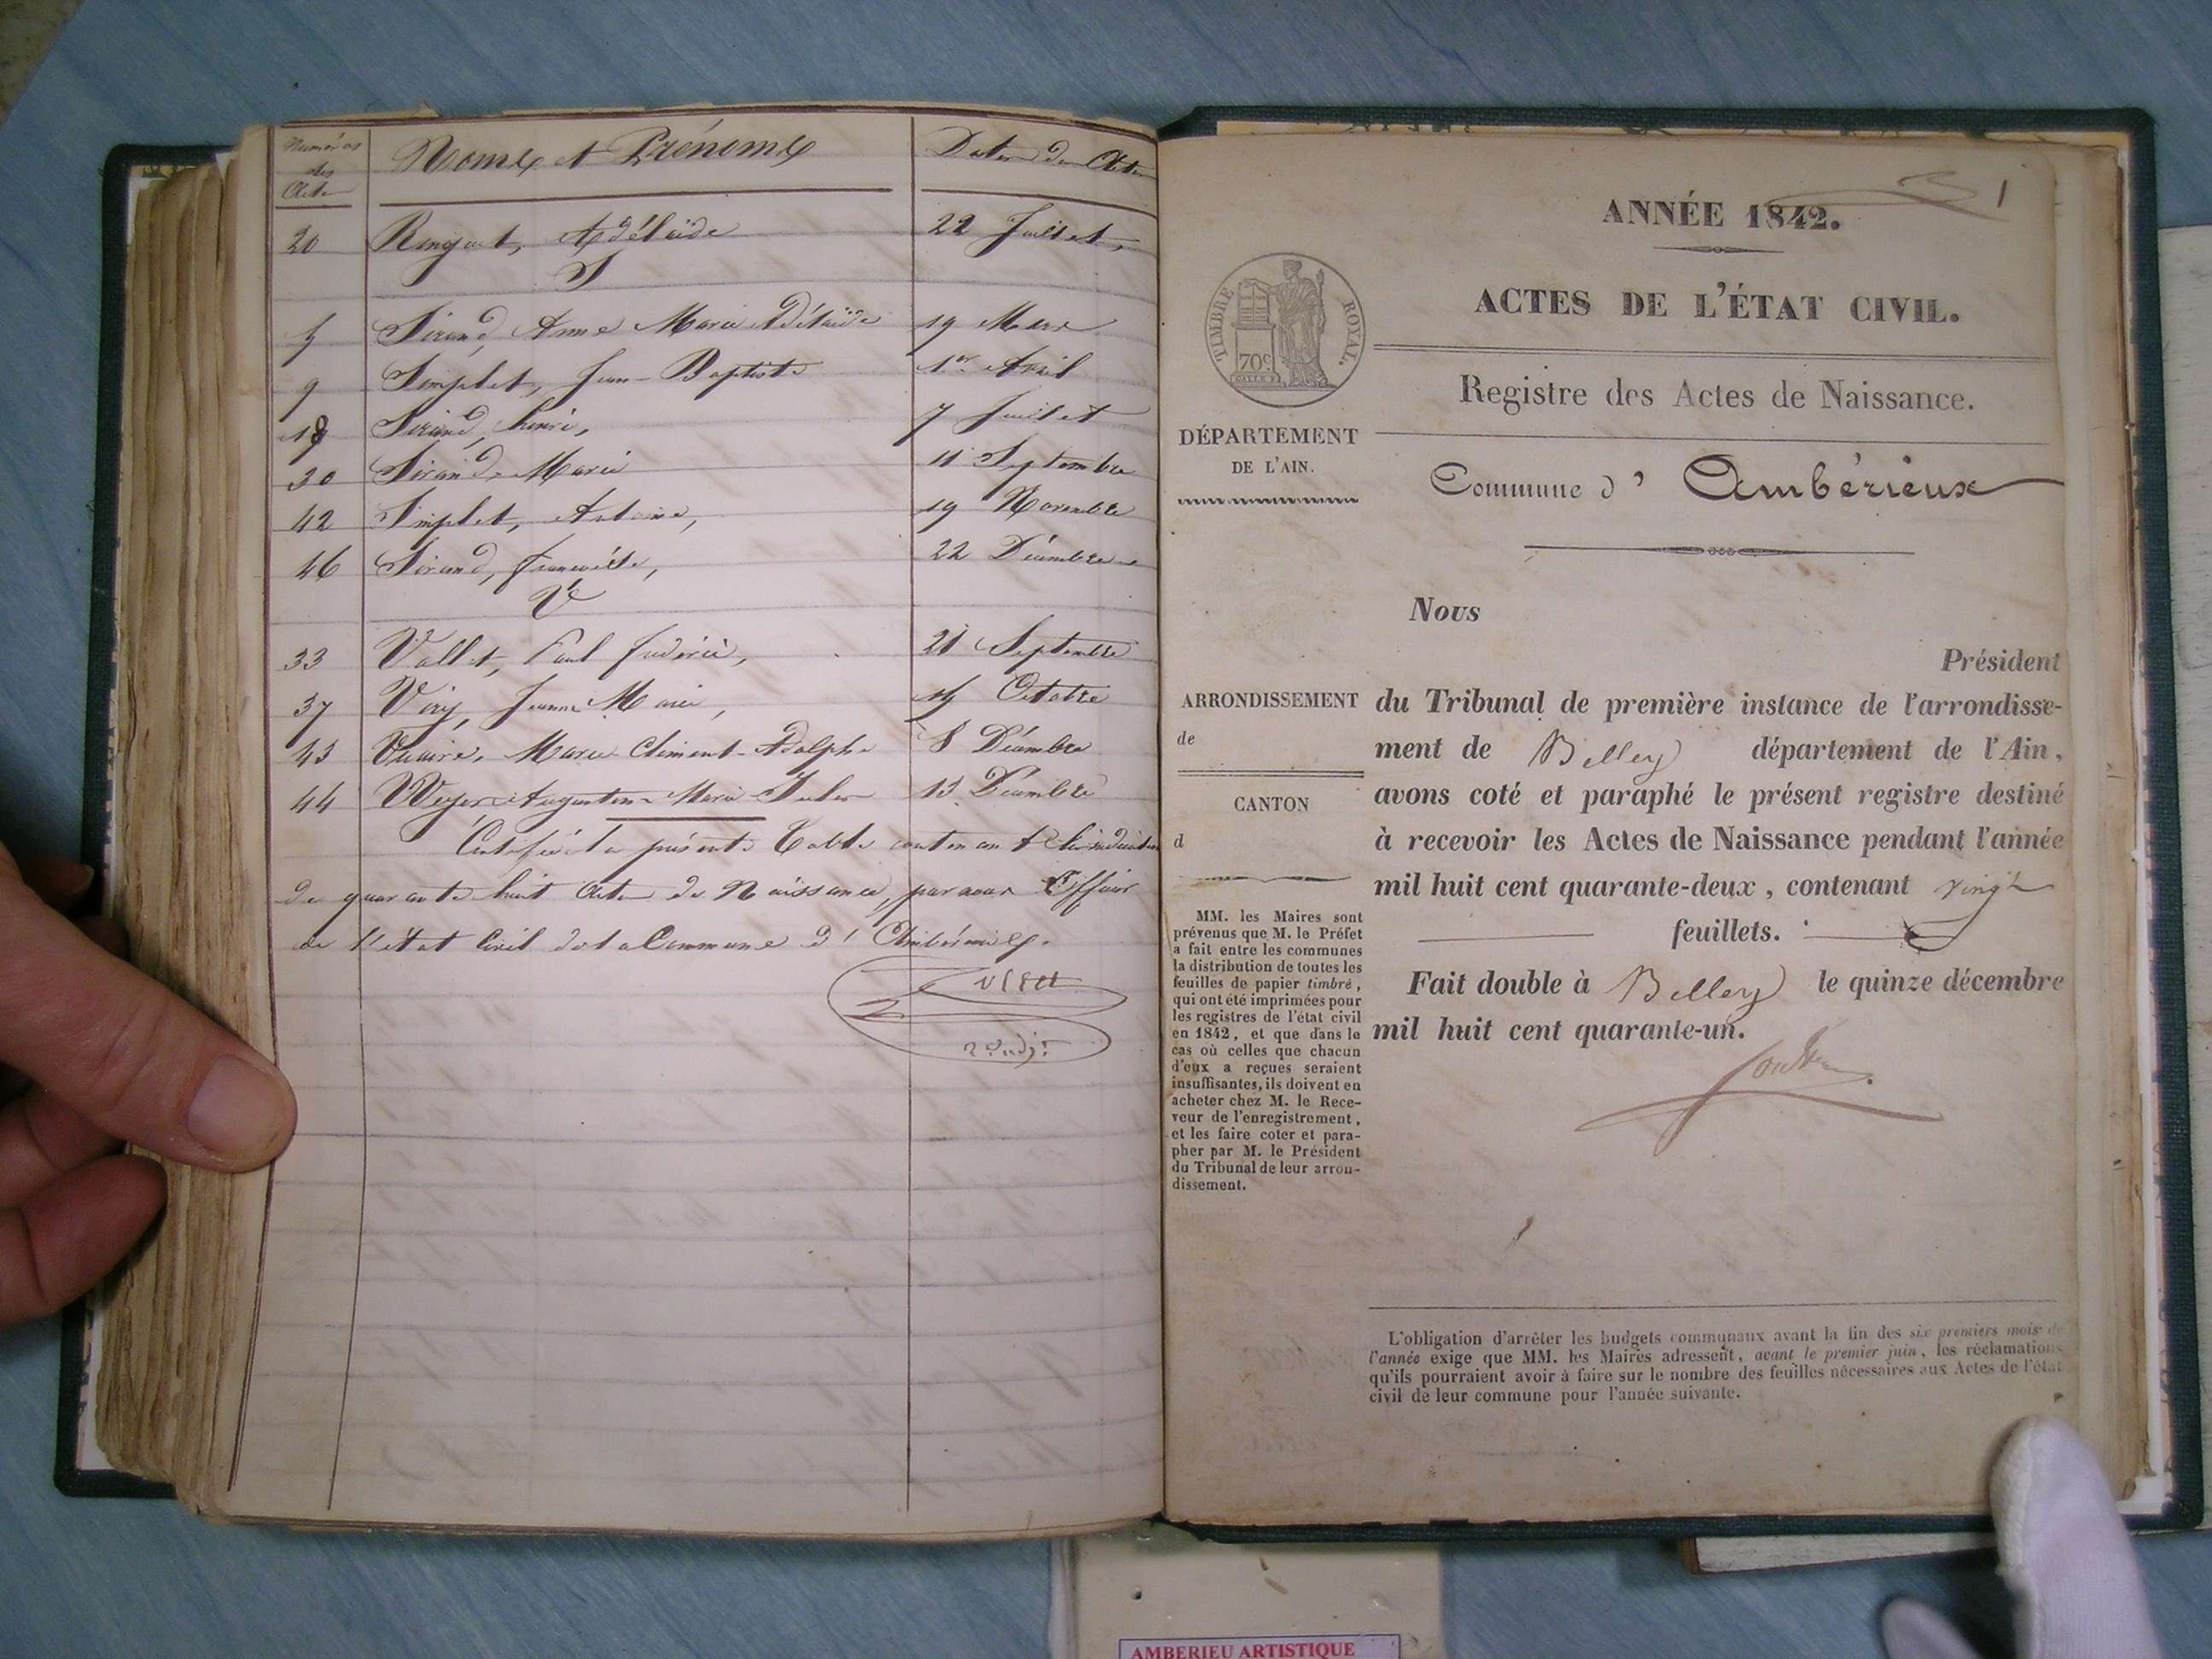 Numéros
des
Actes
Noms et Prénoms
Dates des Actes
20 Adélaïde 22 Juillet,
S
5 Sirand, Anne Marie Adélaïde 19 Mars
9 Simplet, Jean-Baptiste 1er Avril
18 Sirand, henri, 7 Juillet
30 Sirand, Marie 11 Septembre
42 Simplet, Antoine, 19 Novembre
46 Sirand, françoise, 22 Décembre
V
33 Vallet, Paul fréderic, 21 Septembre
37 Jeanne Marie, Octobre
43 Marie Clément-Adolphe 8 Décembre
44 Augustine Marie Jules 13 Décembre
Certifié la présente Table contenant
de quarante huit Actes de Naissance, par nous Officier
de l'état Civil de la Commune d'Ambérieux.
1
ANNÉE 1842.
ACTES DE L'ÉTAT CIVIL.
TIMBRE ROYAL.
70c
Registre des Actes de Naissance.
DÉPARTEMENT
DE L'AIN.
Commune d' Ambérieux
Nous
Président
ARRONDISSEMENT
de
CANTON
d
du Tribunal de première instance de l'arrondisse-
ment de Belley département de l'Ain,
avons coté et paraphé le présent registre destiné
à recevoir les Actes de Naissance pendant l'année
mil huit cent quarante-deux, contenant vingt
feuillets.
Fait double à Belley le quinze décembre
mil huit cent quarante-un.
MM. les Maires sont
prévenus que M. le Préfet
a fait entre les communes
la distribution de toutes les
feuilles de papier timbré,
qui ont été imprimées pour
les registres de l'état civil
en 1842, et que dans le
cas où celles que chacun
d'eux a reçues seraient
insuffisantes, ils doivent en
acheter chez M. le Rece-
veur de l'enregistrement,
et les faire coter et para-
pher par M. le Président
du Tribunal de leur arron-
dissement.
L'obligation d'arrêter les budgets communaux avant la fin des six premiers mois de
l'année exige que MM. les Maires adressent, avant le premier juin, les réclamations
qu'ils pourraient avoir à faire sur le nombre des feuilles nécessaires aux Actes de l'état
civil de leur commune pour l'année suivante.
AMBERIEU ARTISTIQUE